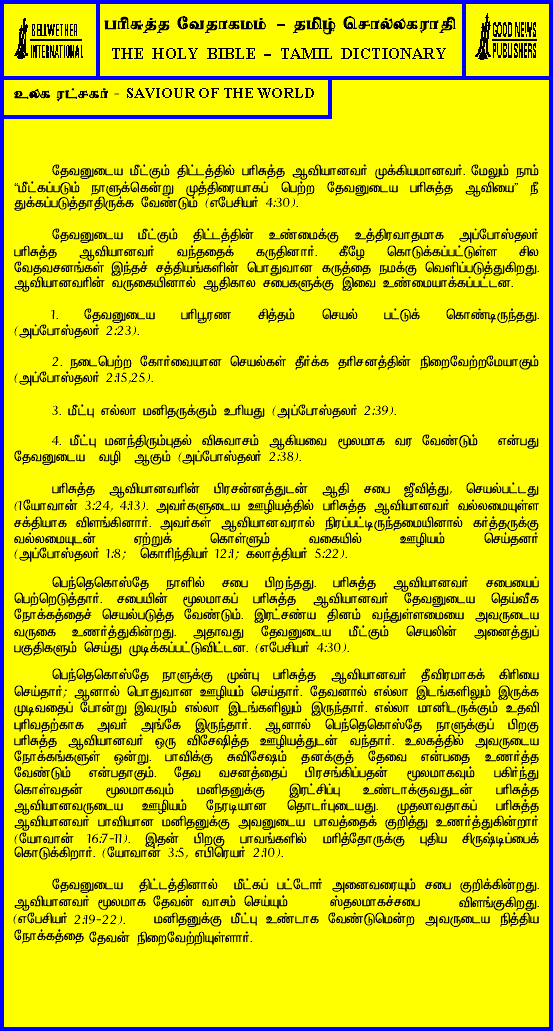 BELLWETHER
INTERNATIONAL
பரிசுத்த வேதாகமம் – தமிழ் சொல்லகராதி
THE HOLY BIBLE – TAMIL DICTIONARY
GOOD NEWS
PUBLISHERS
உலக ரட்சகர் - SAVIOUR OF THE WORLD
தேவனுடைய மீட்கும் திட்டத்தில் பரிசுத்த ஆவியானவர் முக்கியமானவர். மேலும் நாம்
“மீட்கப்படும் நாளுக்கென்று முத்திரையாகப் பெற்ற தேவனுடைய பரிசுத்த ஆவியை” நீ
துக்கப்படுத்தாதிருக்க வேண்டும் (எபேசியர் 4:30).
தேவனுடைய மீட்கும் திட்டத்தின் உண்மைக்கு உத்திரவாதமாக அப்போஸ்தலர்
பரிசுத்த ஆவியானவர் வந்ததைக் கருதினார். கீழே கொடுக்கப்பட்டுள்ள சில
வேதவசனங்கள் இந்தச் சத்தியங்களின் பொதுவான கருத்தை நமக்கு வெளிப்படுத்துகிறது.
ஆவியானவரின் வருகையினால் ஆதிகால சபைகளுக்கு இவை உண்மையாக்கப்பட்டன.
1. தேவனுடைய பரிபூரண சித்தம் செயல் பட்டுக் கொண்டிருந்தது.
(அப்போஸ்தலர் 2:23).
2. நடைபெற்ற கோர்வையான செயல்கள் தீர்க்க தரிசனத்தின் நிறைவேற்றமேயாகும்
(அப்போஸ்தலர் 2:15,25).
3. மீட்பு எல்லா மனிதருக்கும் உரியது (அப்போஸ்தலர் 2:39).
4. மீட்பு மனந்திரும்புதல் விசுவாசம் ஆகியவை மூலமாக வர வேண்டும் என்பது
தேவனுடைய வழி ஆகும் (அப்போஸ்தலர் 2:38).
பரிசுத்த ஆவியானவரின் பிரசன்னத்துடன் ஆதி சபை ஜீவித்து, செயல்பட்டது
(1யோவான் 3:24, 4:13). அவர்களுடைய ஊழியத்தில் பரிசுத்த ஆவியானவர் வல்லமையுள்ள
சக்தியாக விளங்கினார். அவர்கள் ஆவியானவரால் நிரப்பட்டிருந்தமையினால் கர்த்தருக்கு
வல்லமையுடன் ஏற்றுக் கொள்ளும் வகையில் ஊழியம் செய்தனர்
(அப்போஸ்தலர் 1:8; கொரிந்தியர் 12:1; கலாத்தியர் 5:22).
பெந்தெகொஸ்தே நாளில் சபை பிறந்தது. பரிசுத்த ஆவியானவர் சபையைப்
பெற்றெடுத்தார். சபையின் மூலமாகப் பரிசுத்த ஆவியானவர் தேவனுடைய தெய்வீக
நோக்கத்தைச் செயல்படுத்த வேண்டும். இரட்சண்ய தினம் வந்துள்ளமையை அவருடைய
வருகை உணர்த்துகின்றது. அதாவது தேவனுடைய மீட்கும் செயலின் அனைத்துப்
பகுதிகளும் செய்து முடிக்கப்பட்டுவிட்டன. (எபேசியர் 4:30).
பெந்தெகொஸ்தே நாளுக்கு முன்பு பரிசுத்த ஆவியானவர் தீவிரமாகக் கிரியை
செய்தார்; ஆனால் பொதுவான ஊழியம் செய்தார். தேவனால் எல்லா இடங்களிலும் இருக்க
முடிவதைப் போன்று இவரும் எல்லா இடங்களிலும் இருந்தார். எல்லா மானிடருக்கும் உதவி
புரிவதற்காக அவர் அங்கே இருந்தார். ஆனால் பெந்தெகொஸ்தே நாளுக்குப் பிறகு
பரிசுத்த ஆவியானவர் ஒரு விசேஷித்த ஊழியத்துடன் வந்தார். உலகத்தில் அவருடைய
நோக்கங்களுள் ஒன்று. பாவிக்கு சுவிசேஷம் தனக்குத் தேவை என்பதை உணர்த்த
வேண்டும் என்பதாகும். தேவ வசனத்தைப் பிரசங்கிப்பதன் மூலமாகவும் பகிர்ந்து
கொள்வதன் மூலமாகவும் மனிதனுக்கு இரட்சிப்பு உண்டாக்குவதுடன் பரிசுத்த
ஆவியானவருடைய ஊழியம் நேரடியான தொடர்புடையது. முதலாவதாகப் பரிசுத்த
ஆவியானவர் பாவியான மனிதனுக்கு அவனுடைய பாவத்தைக் குறித்து உணர்த்துகின்றார்
(யோவான் 16:7-11). இதன் பிறகு பாவங்களில் மரித்தோருக்கு புதிய சிருஷ்டிப்பைக்
கொடுக்கிறார். (யோவான் 3:5, எபிரெயர் 2:10).
தேவனுடைய திட்டத்தினால் மீட்கப் பட்டோர் அனைவரையும் சபை குறிக்கின்றது.
ஆவியானவர் மூலமாக தேவன் வாசம் செய்யும் ஸ்தலமாகச்சபை விளங்குகிறது.
(எபேசியர் 2:19-22). மனிதனுக்கு மீட்பு உண்டாக வேண்டுமென்ற அவருடைய நித்திய
நோக்கத்தை தேவன் நிறைவேற்றியுள்ளார்.